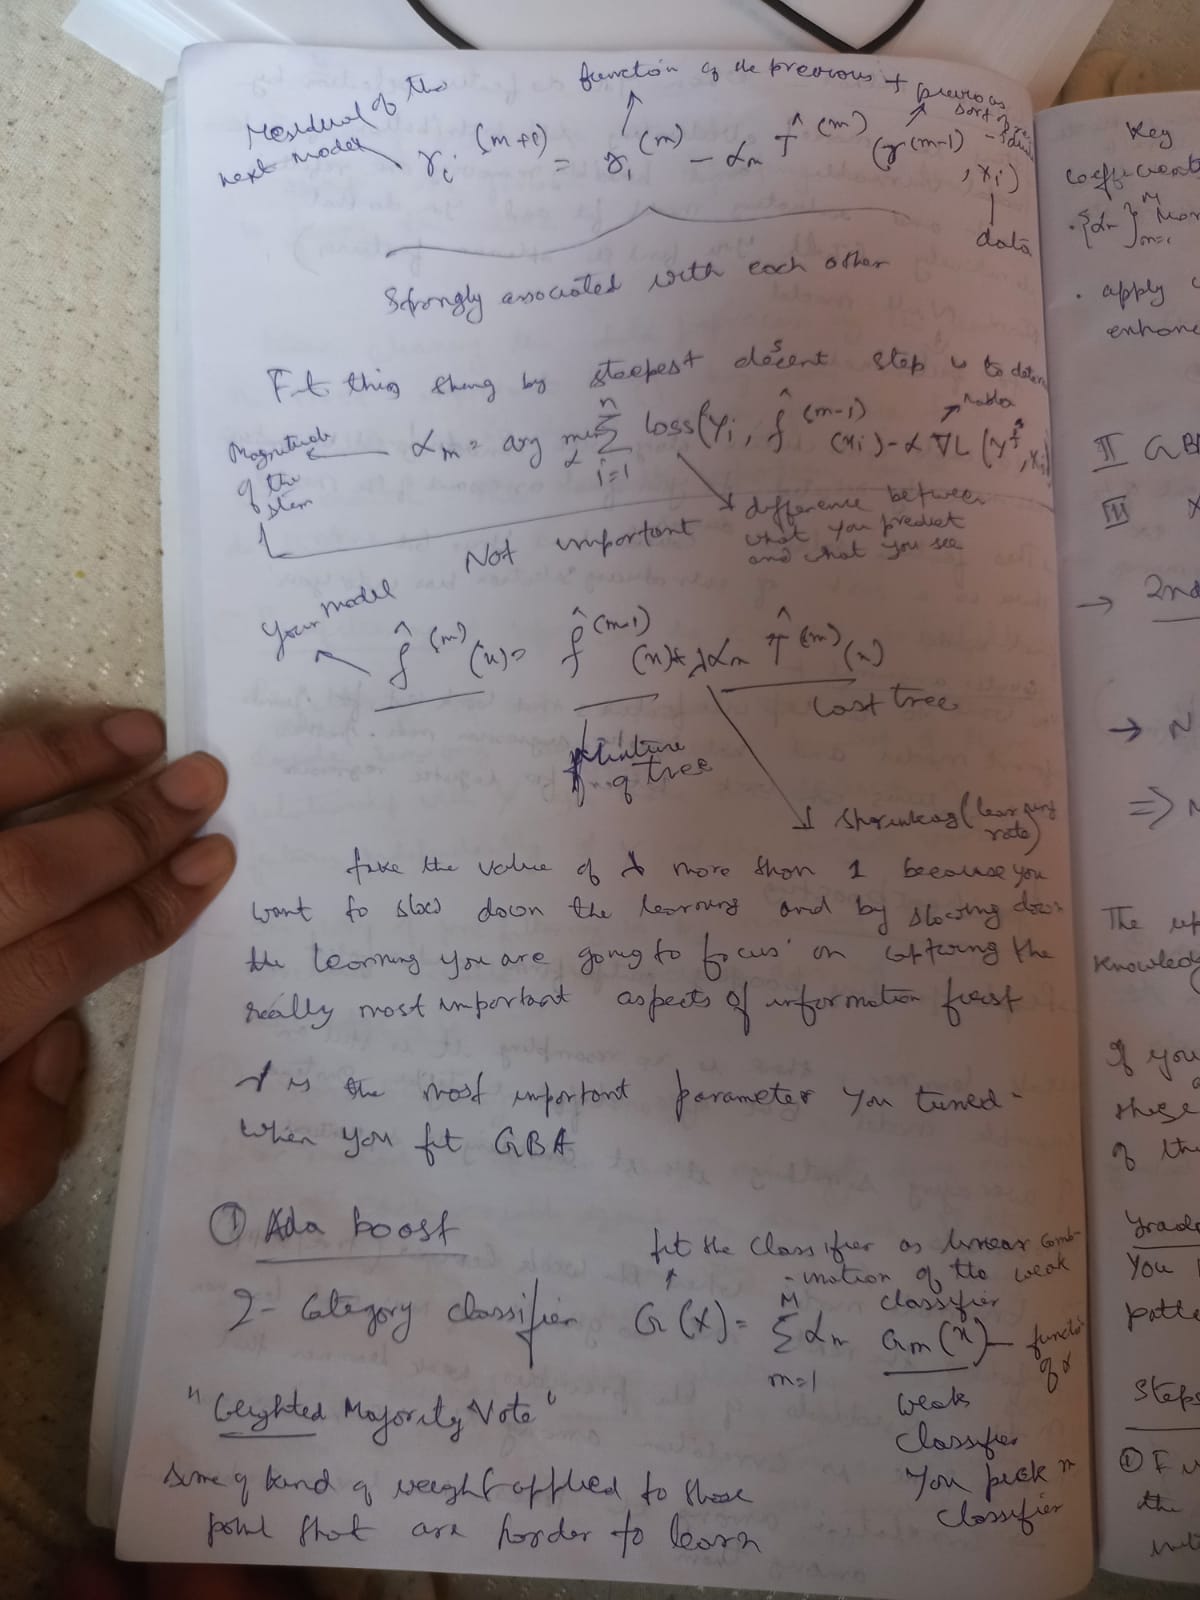 function of the previous + previous
sort of
Residual of the
next model
γi^(m+1) = γi^(m) − αm T̂^(m) (γ^(m-1), xi)
data
Strongly associated with each other
Fit this thing by steepest descent step is to
nabla
αm = arg min_α Σ_{i=1}^{n} loss(yi, f̂^(m-1)(xi) − α ∇L(y, f̂, xi)
Magnitude
of the
step
difference between
what you predict
and what you see
Not important
Your model
f̂^(m)(x) = f̂^(m-1)(x) + λαm T̂^(m)(x)
Last tree
Mixture
of tree
Shrinkag (learning
rate)
Take the value of λ more than 1 because you
want to slow down the learning and by slowing down
the learning you are going to focus on capturing the
really most important aspects of information first
λ is the most important parameter you tuned
when you fit GBA
① Ada boost
fit the classifier as linear comb-
-ination of the weak
classifier
2- Category classifier G(x) = Σ_{m=1}^{M} αm Gm(x) – function
of x
weak
classifier
"Weighted Majority Vote"
You pick m
classifier
some of kind of weight applied to those
point that are harder to learn
Key
coefficients
{αm}^M_{m=1}
· apply
II GB
III X
→ 2nd
→ N
⇒
The
knowledg
If you
these
of the
You
patte
Steps
①
the